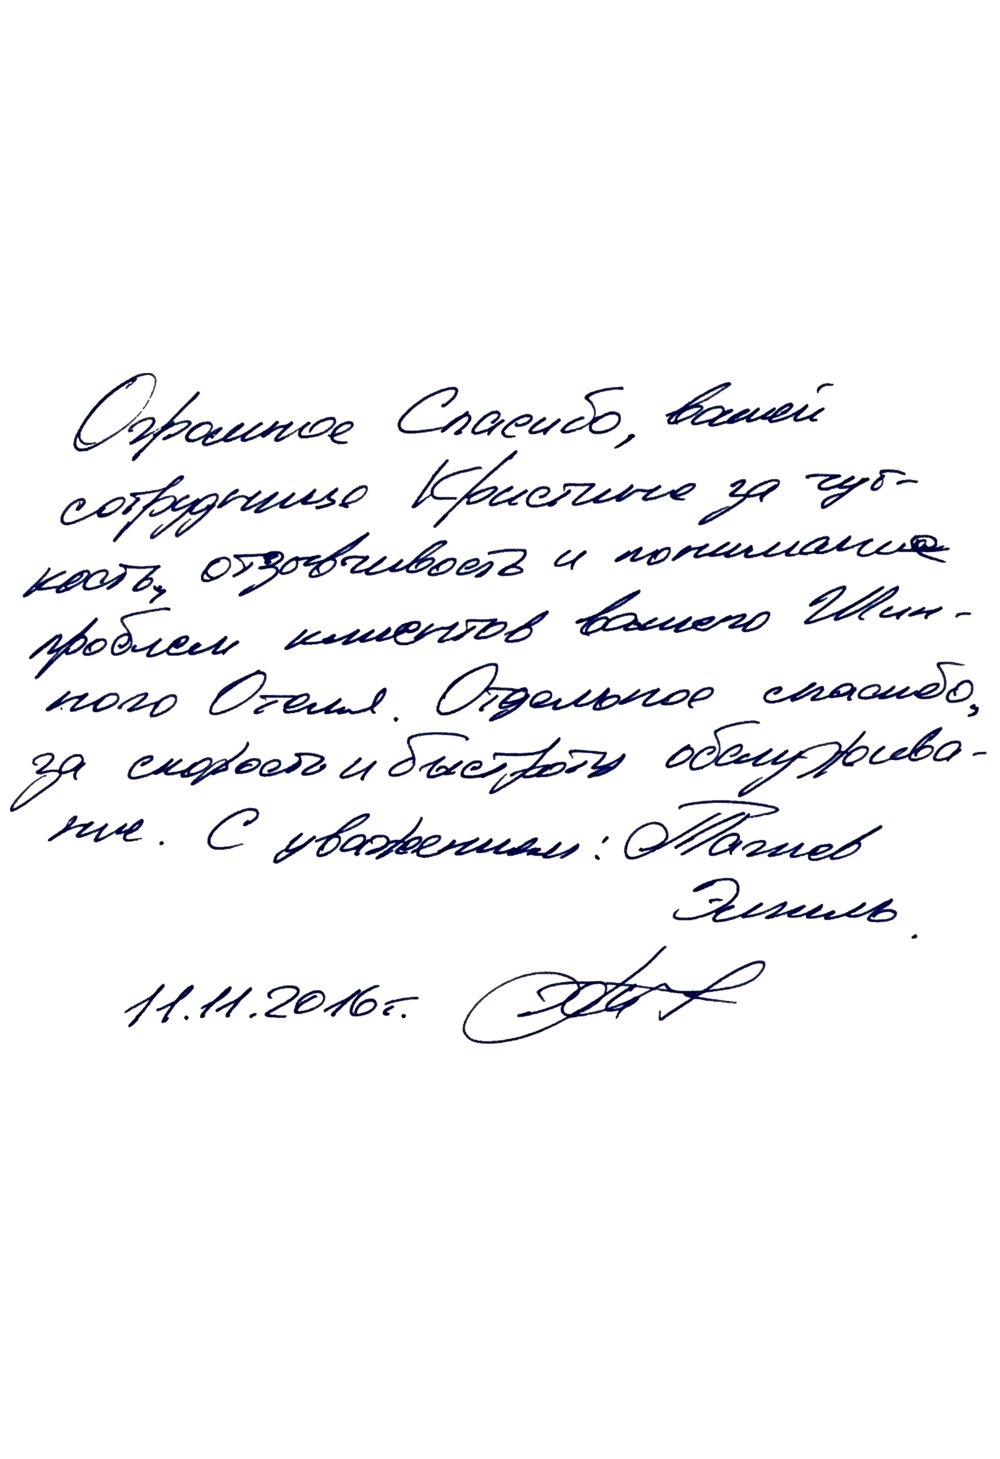 Огромное Спасибо, вашей
сотруднице Кристине за чут-
кость, отзывчивость и понимание
проблем клиентов вашего Шин-
ного Отеля. Отдельное спасибо,
за скорость и быстроту обслужива-
ние. С уважением: Тагиев
11.11.2016г.